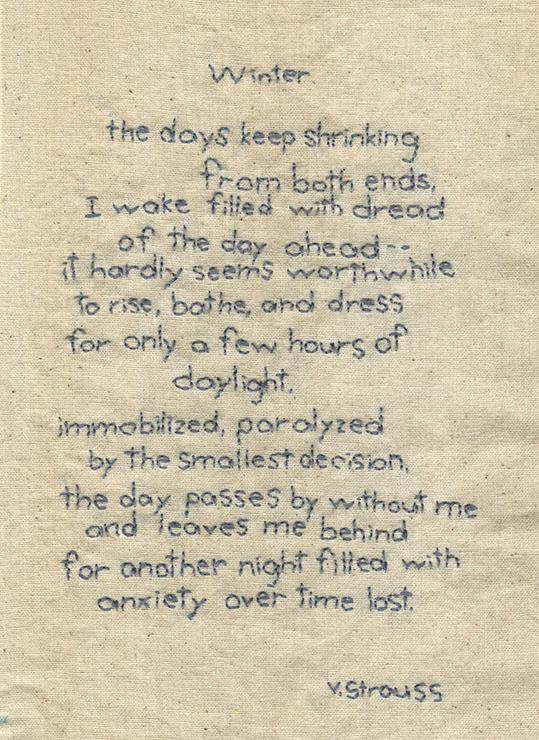 Winter
the days keep shrinking
from both ends,
I wake filled with dread
of the day ahead--
it hardly seems worthwhile
to rise, bathe, and dress
for only a few hours of
daylight.
immobilized, paralyzed
by the smallest decision,
the day passes by without me
and leaves me behind
for another night filled with
anxiety over time lost.
V. Strauss